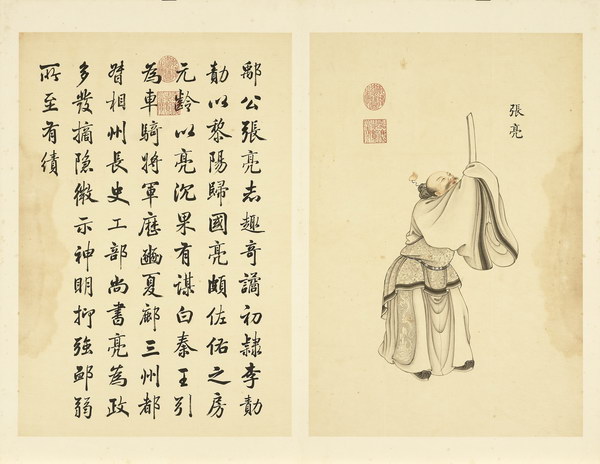 張亮
鄖公張亮志趣奇譎初隸李勣
勣以黎陽歸國亮頗佐佑之房
元齡以亮沉果有謀白秦王引
為車騎將軍歷豳夏鄜三州都
督相州長史工部尚書亮為政
多發摘隱微示神明抑強卹弱
所至有績